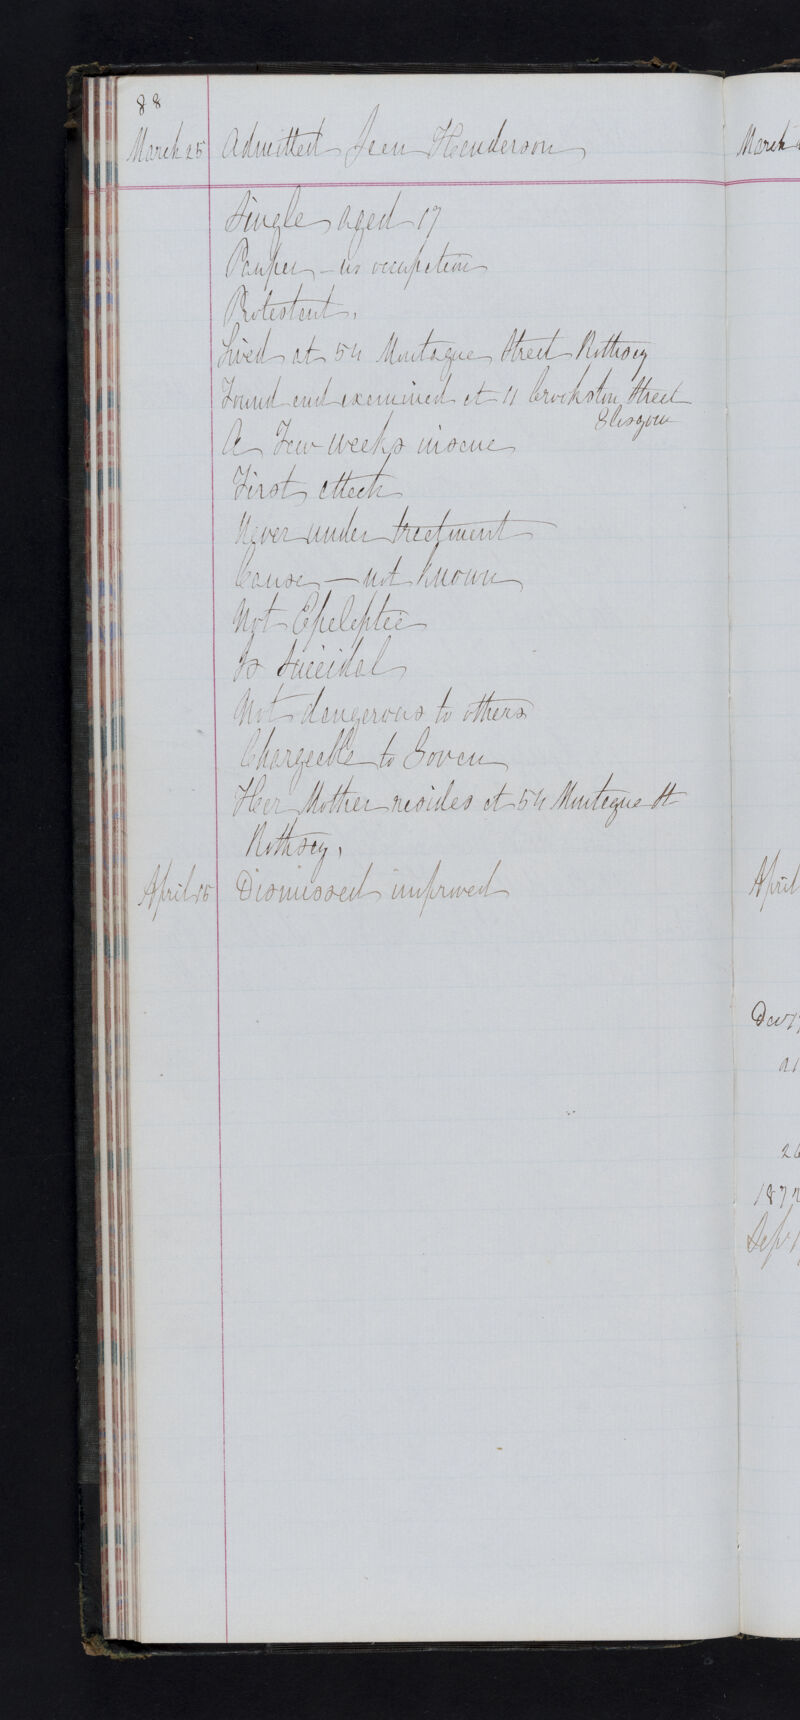 88
March 25 Admitted Jean Henderson
Single aged 17
Pauper - no occupation
Protestant.
Lived at 54 Montague Street Rothsay
Found and examined at 11 Crookston Street
Glasgow
A Few weeks insane
First attack
Never under treatment
Cause - not known
Not Epeleptic
Is Suicidal
Not dangerous to others
Chargeable to Govan
Her Mother resides at 54 Montague St
Rothsay.
April 15 Dismissed improved
March
April
Dec 17
26
187
Sep 1